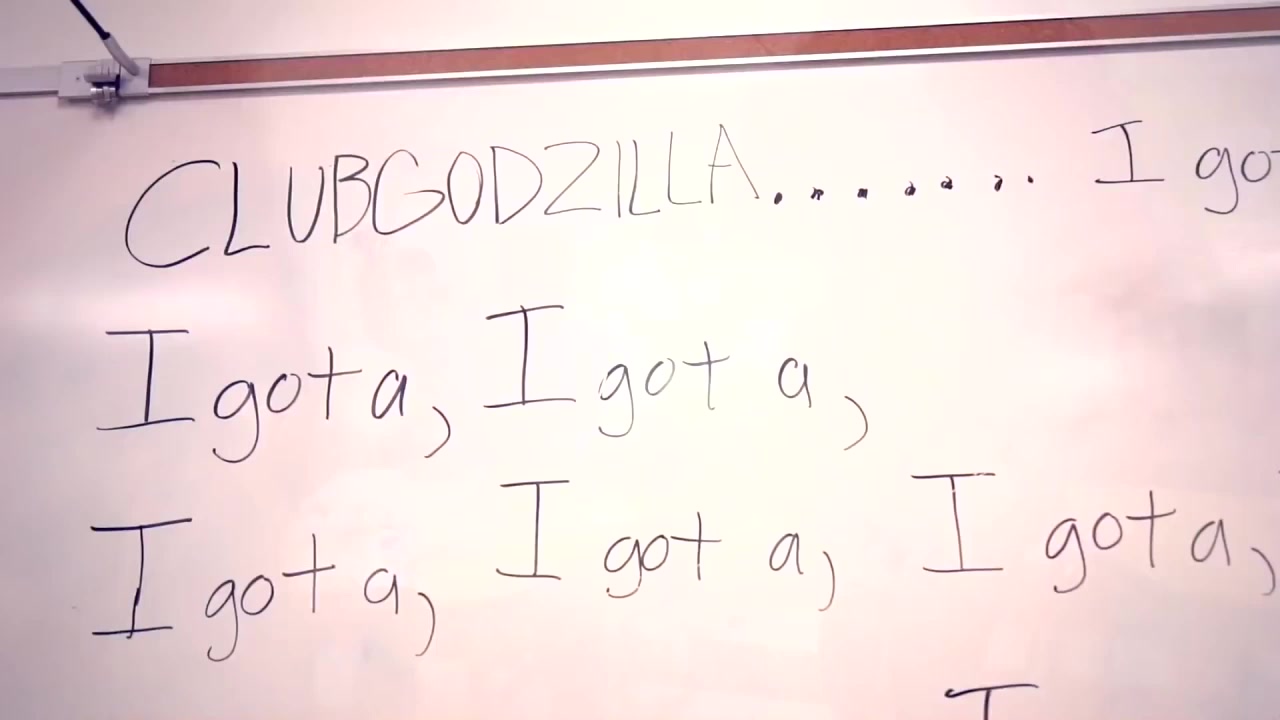 CLUBGODZILLA....... I go
I got a, I got a,
I got a, I got a, I got a,
I